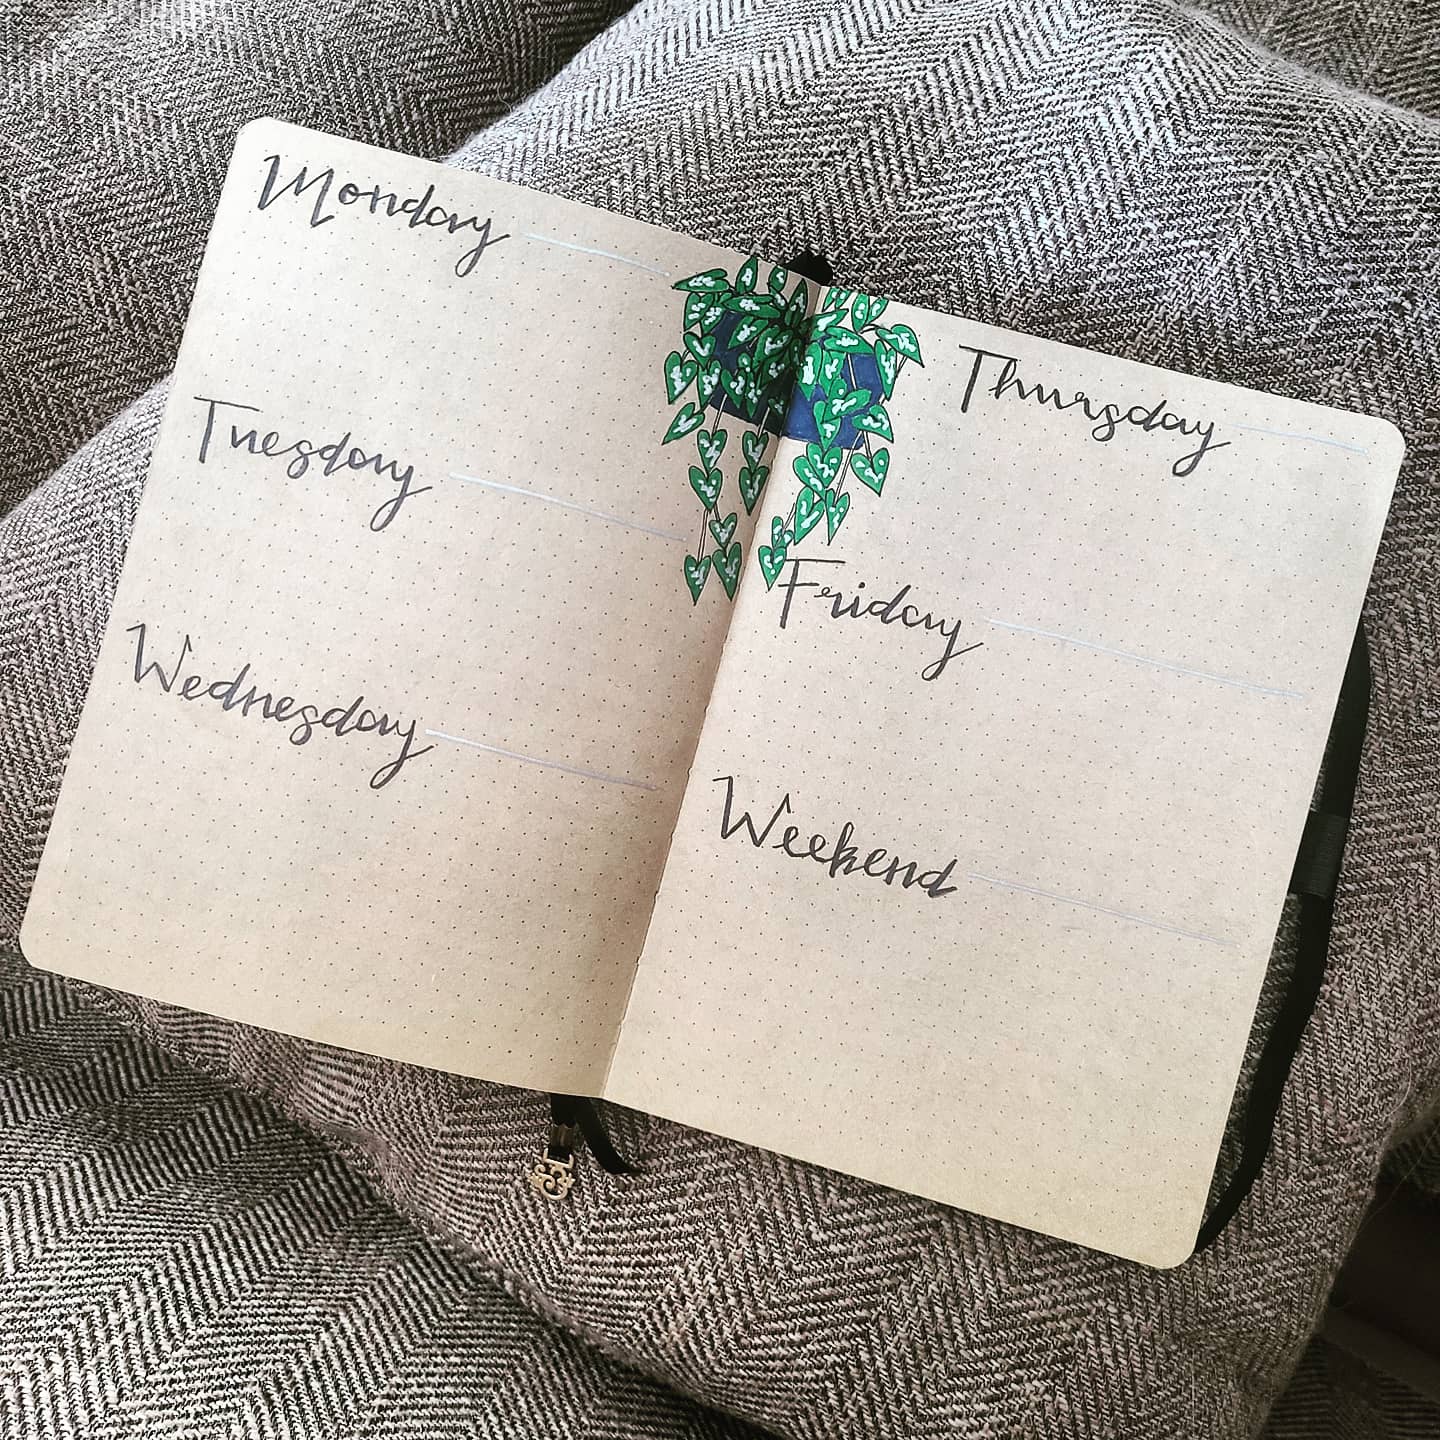 Monday
Tuesday
Wednesday
Thursday
Friday
Weekend